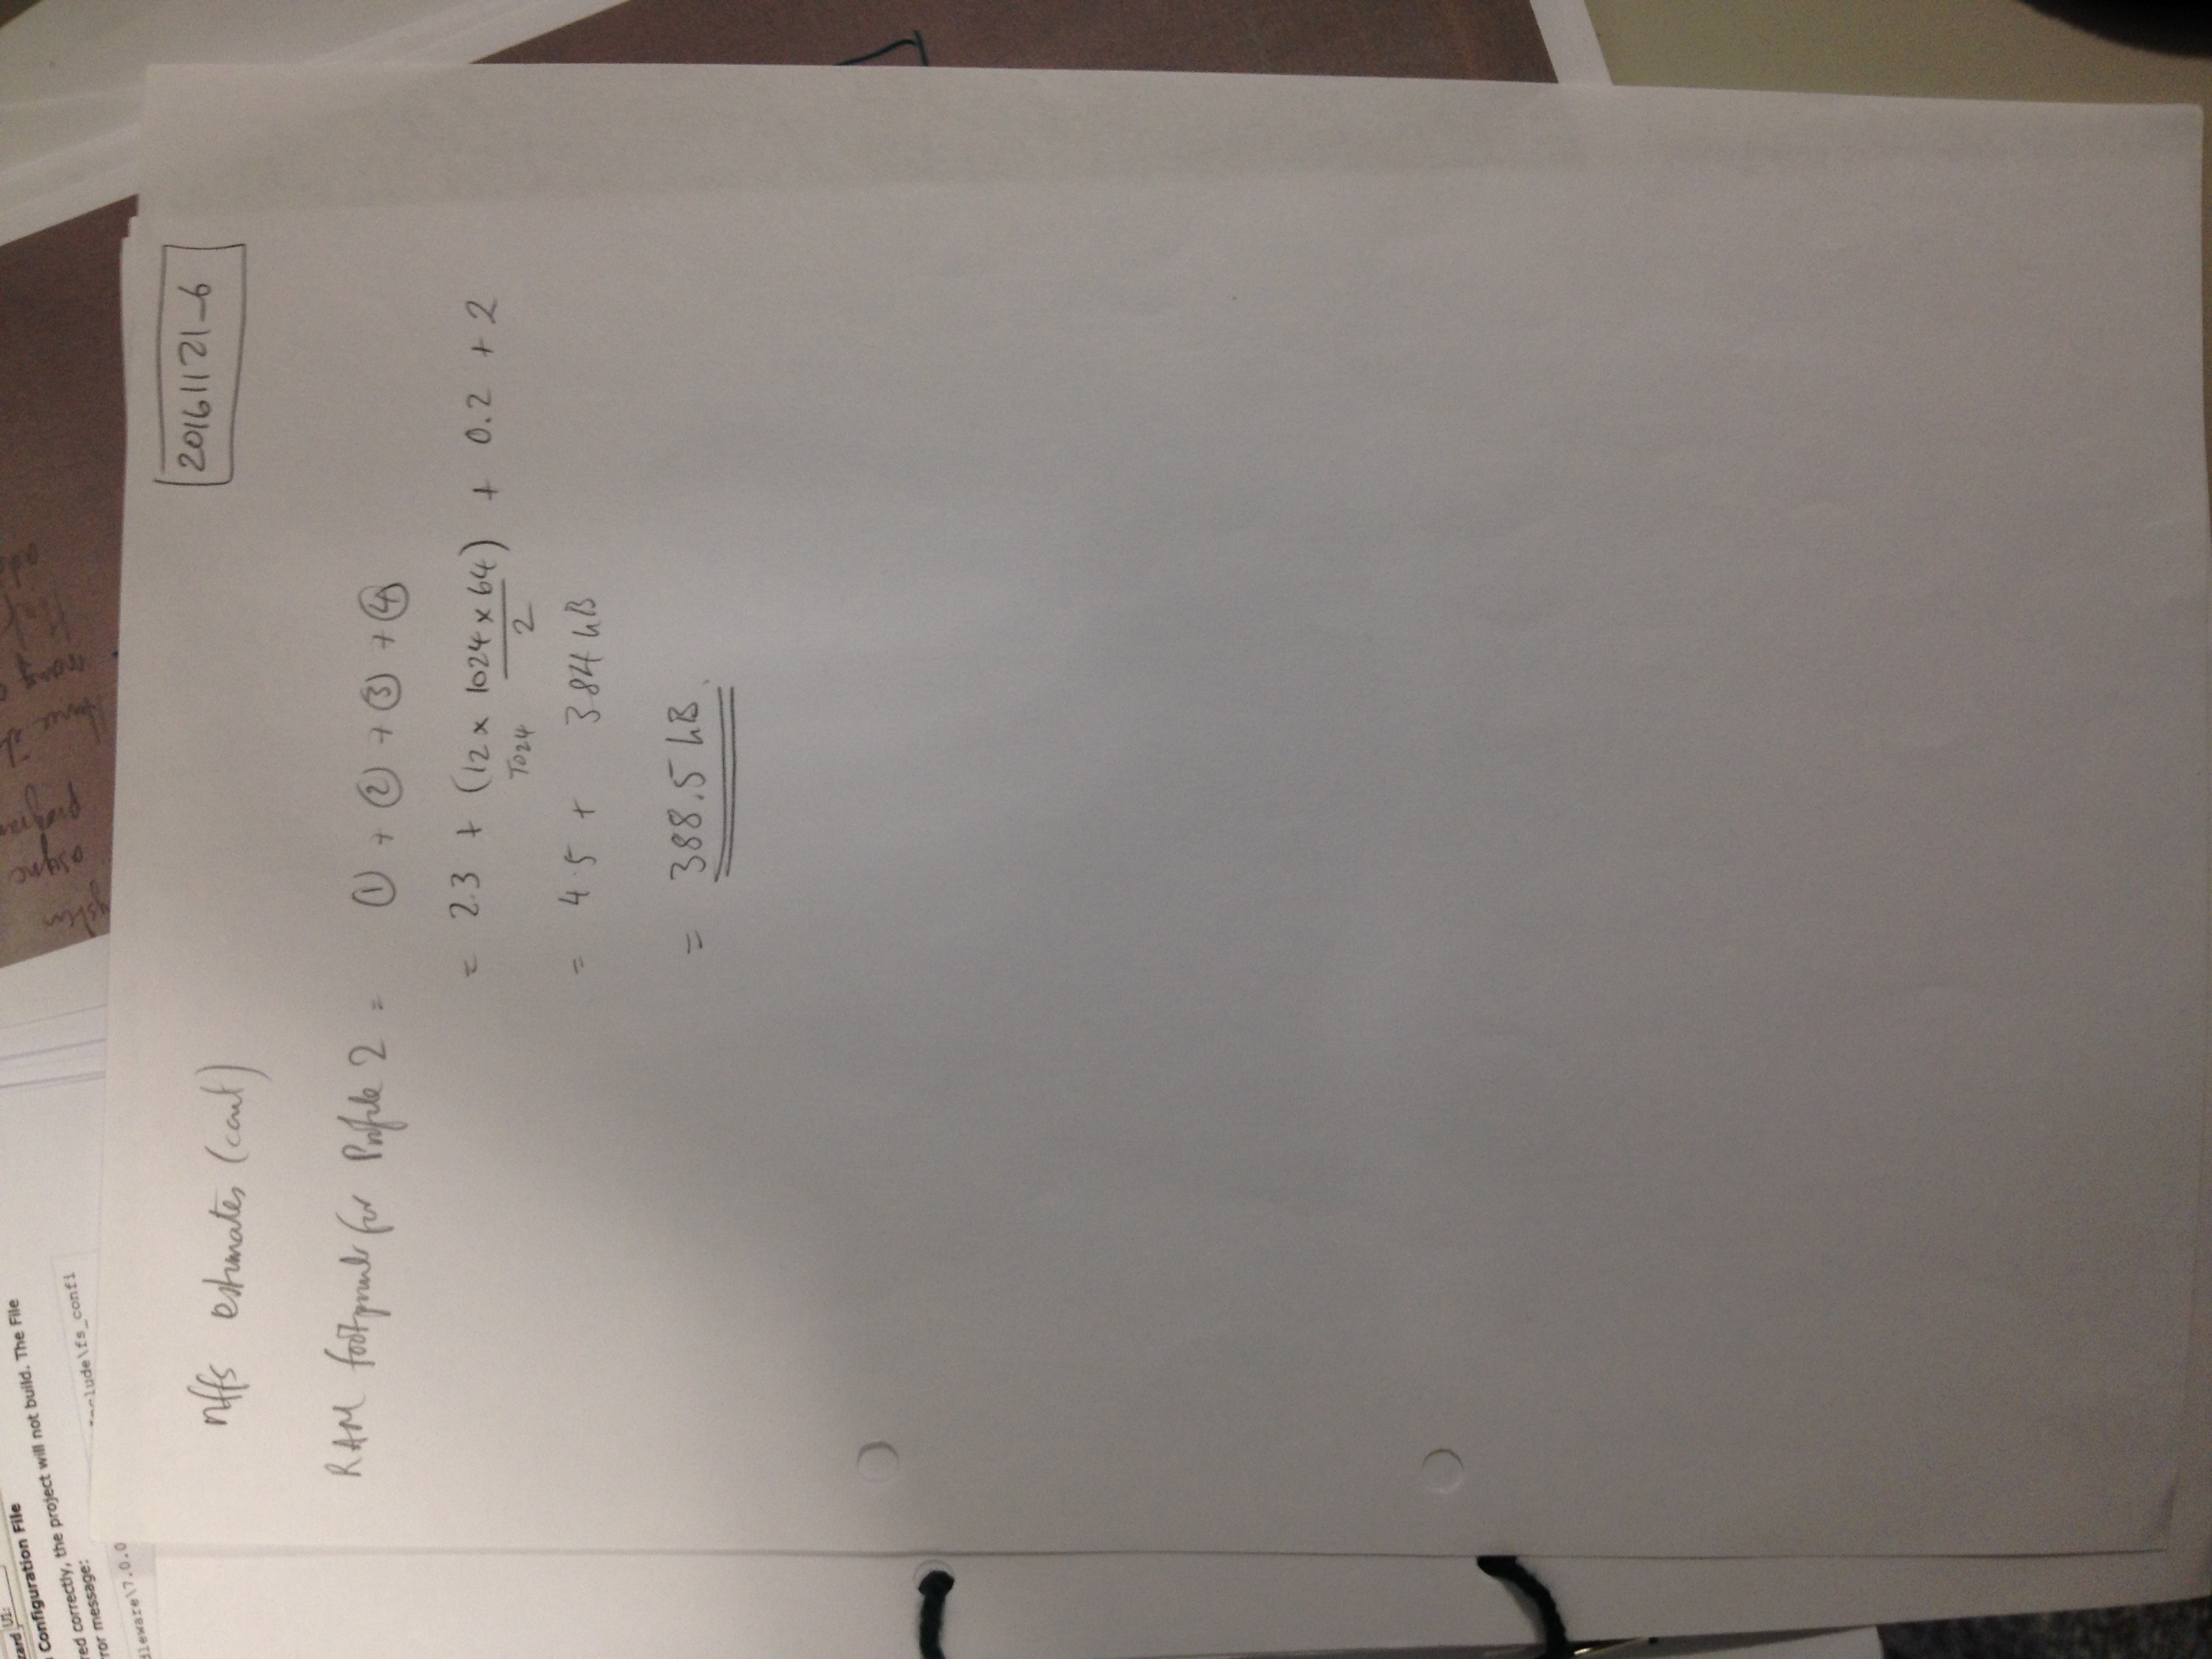 zard UI:
Configuration File
red correctly, the project will not build. The File
ror message:
nclude\fs_confi
dleware\7.0.0
async
20161121_6
nffs estimates (cont)
RAM footprint for Profile 2 = ① + ② + ③ + ④
= 2.3 + (12 x 1024 x 64) + 0.2 + 2
1024 2
= 4.5 + 384 kB
= 388.5 kB